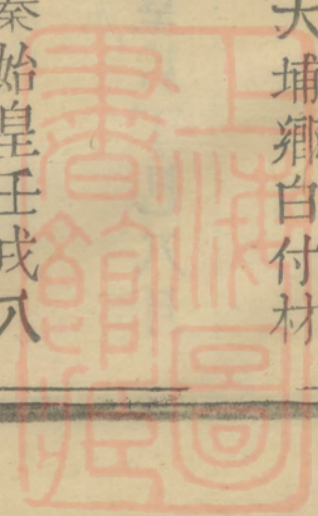 大埔鄉白付材
秦始皇壬戌八
上海圖
書館藏